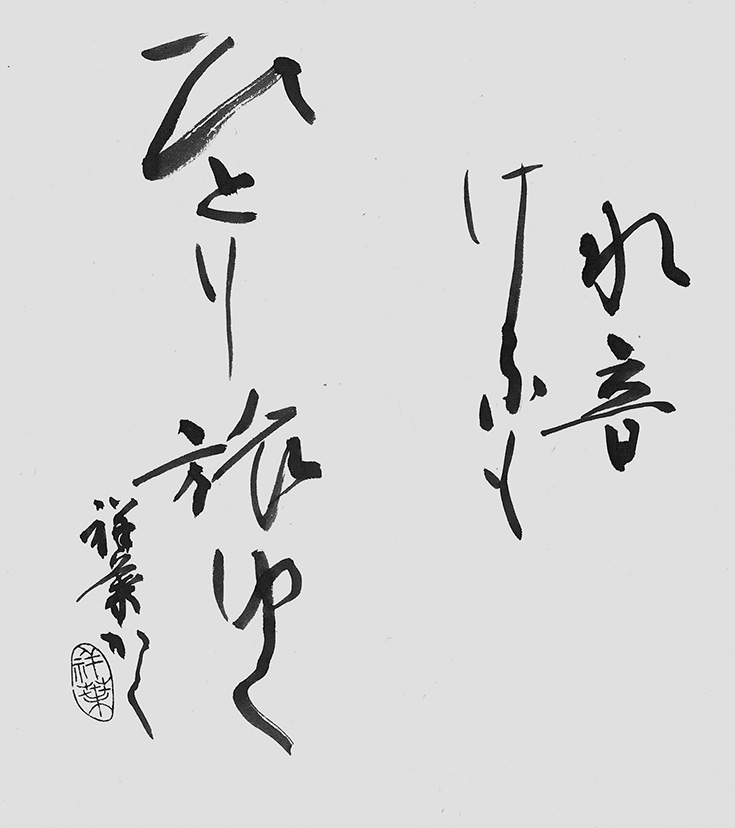 水音
けふも
ひとり旅ゆく
祥葉かく
祥葉